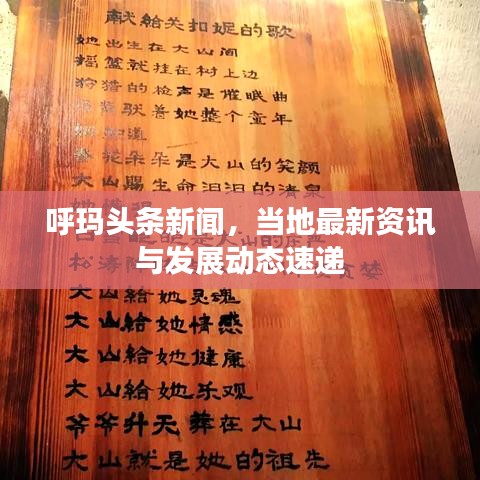 献給关扣妮的歌
她出生在大山间
摇籃就挂在树上边
狩猎的枪声是催眠曲
背驮着她整个童年
知道
花朵朵是大山的笑颜
大山賜生命汩汩的清泉
呼玛头条新闻，当地最新资讯
与发展动态速递
大山給她灵魂
大山給她情感
大山給她健康
大山給她乐观
爷爷升天葬在大山
大山就是她的祖先